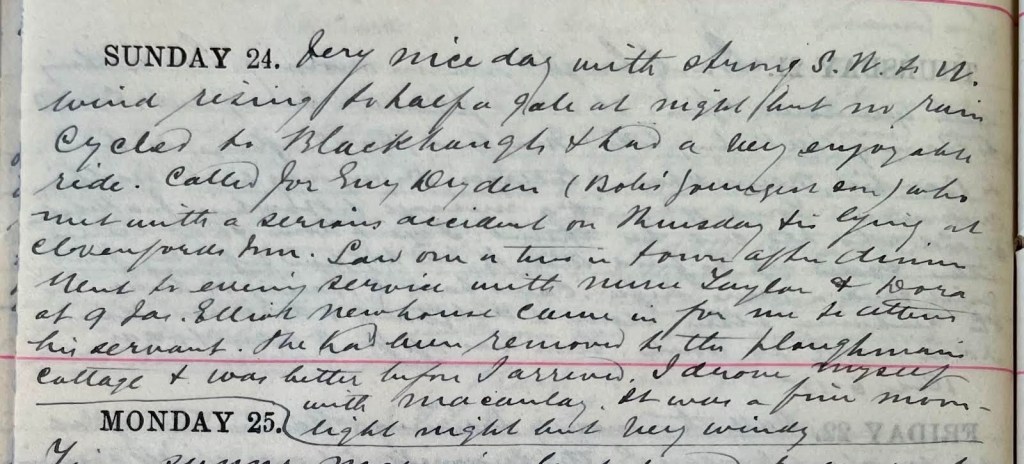 SUNDAY 24. Very nice day with strong S.W. to W.
wind rising to half a gale at night but no rain
Cycled to Blackhaugh & had a very enjoyable
ride. Called for Dryden (Bob's youngest son) who
met with a serious accident on Thursday & is lying at
Clovenfords Inn. Saw one or two in town after dinner
Went to evening service with nurse Taylor & Dora
at 9 Jas. Elliot Newhouse came in for me to attend
his servant. She had been removed to the ploughman's
cottage & was better before I arrived. I drove myself
with Macaulay. It was a fine moon-
MONDAY 25. light night but very windy
FRIDAY 22.